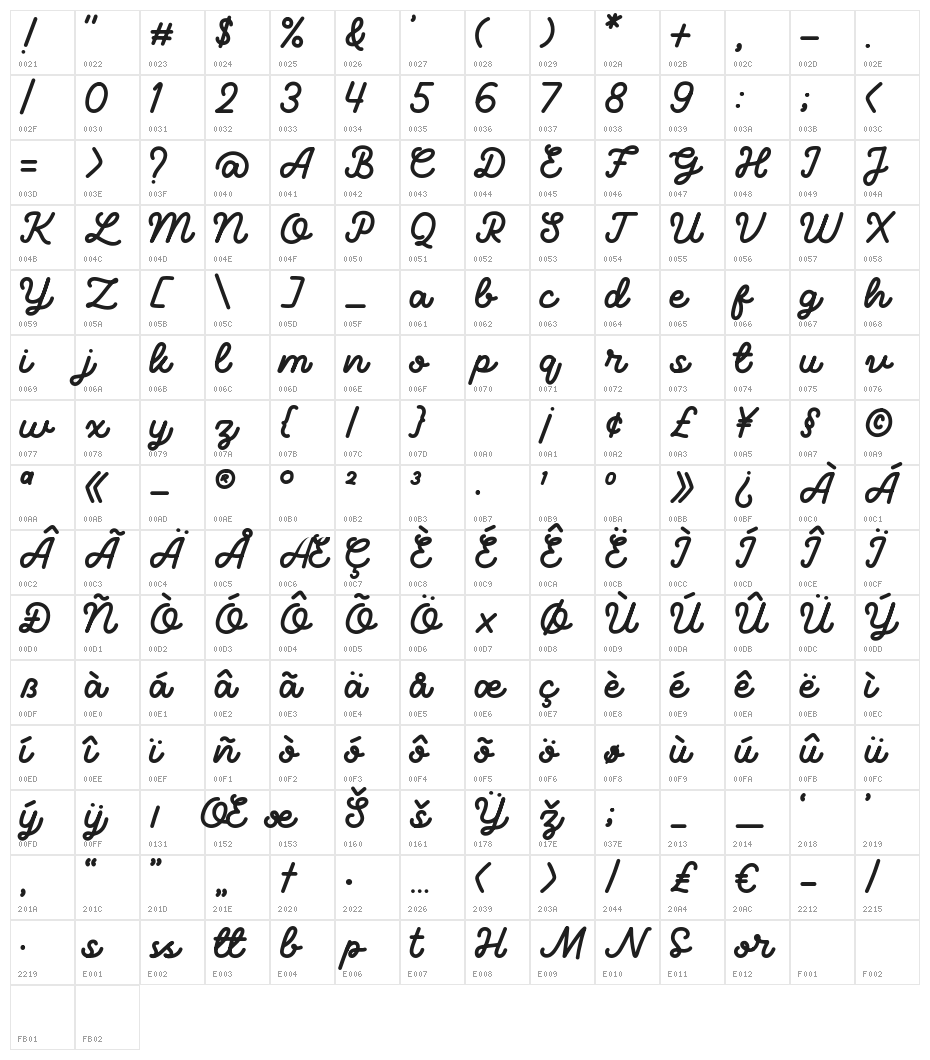 ! " # $ % & ' ( ) * + , - .
0021 0022 0023 0024 0025 0026 0027 0028 0029 002A 002B 002C 002D 002E
/ 0 1 2 3 4 5 6 7 8 9 : ; <
002F 0030 0031 0032 0033 0034 0035 0036 0037 0038 0039 003A 003B 003C
= > ? @ A B C D E F G H I J
003D 003E 003F 0040 0041 0042 0043 0044 0045 0046 0047 0048 0049 004A
K L M N O P Q R S T U V W X
004B 004C 004D 004E 004F 0050 0051 0052 0053 0054 0055 0056 0057 0058
Y Z [ \ ] _ a b c d e f g h
0059 005A 005B 005C 005D 005F 0061 0062 0063 0064 0065 0066 0067 0068
i j k l m n o p q r s t u v
0069 006A 006B 006C 006D 006E 006F 0070 0071 0072 0073 0074 0075 0076
w x y z { | } ¡ ¢ £ ¥ § ©
0077 0078 0079 007A 007B 007C 007D 00A0 00A1 00A2 00A3 00A5 00A7 00A9
ª « - ® ° ² ³ · ¹ º » ¿ À Á
00AA 00AB 00AD 00AE 00B0 00B2 00B3 00B7 00B9 00BA 00BB 00BF 00C0 00C1
Â Ã Ä Å Æ Ç È É Ê Ë Ì Í Î Ï
00C2 00C3 00C4 00C5 00C6 00C7 00C8 00C9 00CA 00CB 00CC 00CD 00CE 00CF
Ð Ñ Ò Ó Ô Õ Ö × Ø Ù Ú Û Ü Ý
00D0 00D1 00D2 00D3 00D4 00D5 00D6 00D7 00D8 00D9 00DA 00DB 00DC 00DD
ß à á â ã ä å æ ç è é ê ë ì
00DF 00E0 00E1 00E2 00E3 00E4 00E5 00E6 00E7 00E8 00E9 00EA 00EB 00EC
í î ï ñ ò ó ô õ ö ø ù ú û ü
00ED 00EE 00EF 00F1 00F2 00F3 00F4 00F5 00F6 00F8 00F9 00FA 00FB 00FC
ý ÿ ı Œ œ Š š Ÿ ž ; – — ‘ ’
00FD 00FF 0131 0152 0153 0160 0161 0178 017E 037E 2013 2014 2018 2019
‚ “ ” „ † • … ‹ › ⁄ ₤ € − ∕
201A 201C 201D 201E 2020 2022 2026 2039 203A 2044 20A4 20AC 2212 2215
∙ s ss tt b p t H M N S or
2219 E001 E002 E003 E004 E006 E007 E008 E009 E010 E011 E012 F001 F002
FB01 FB02